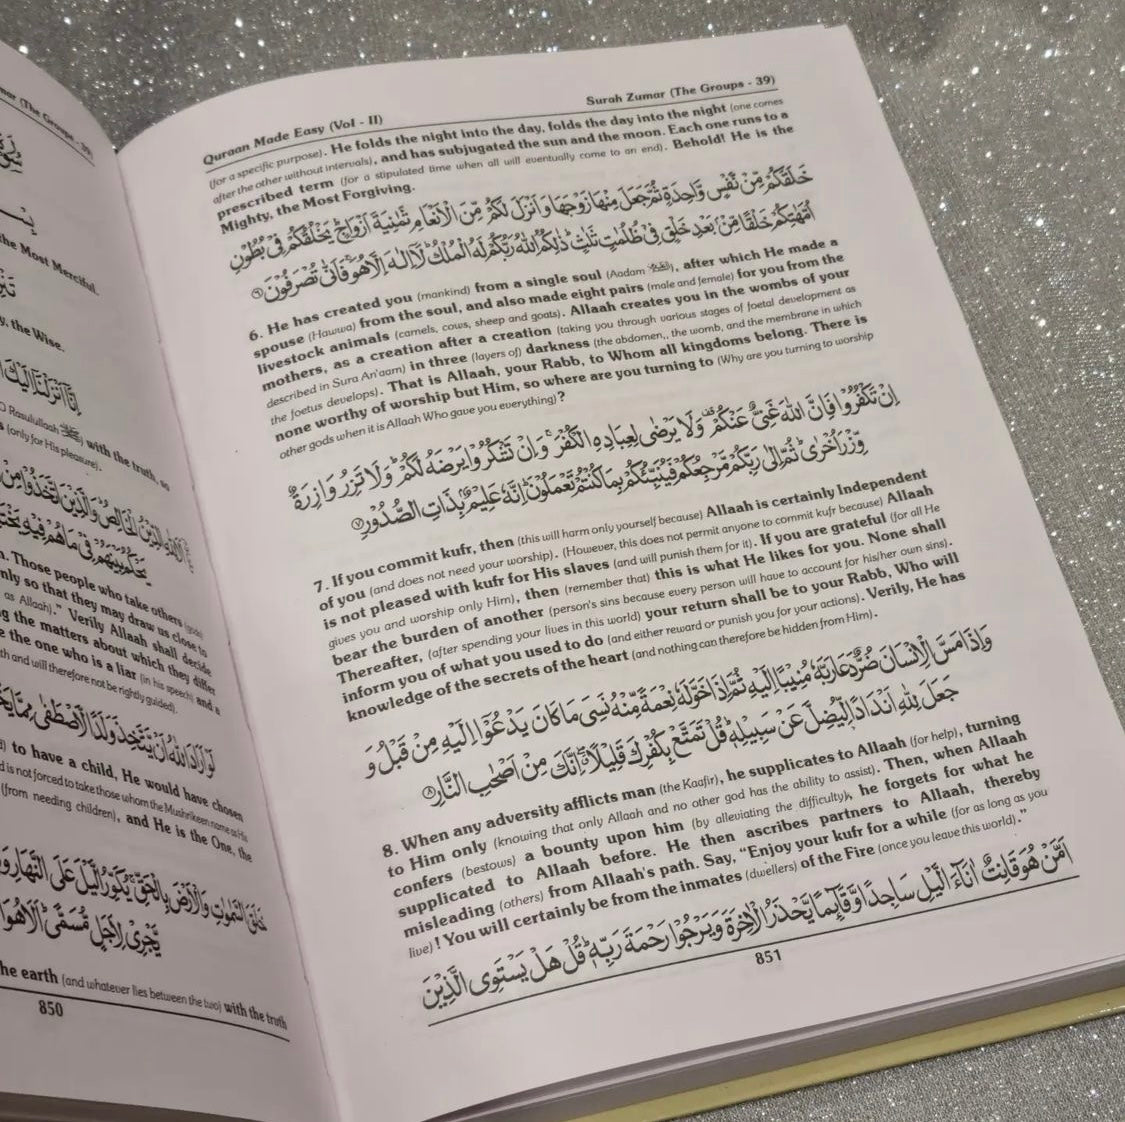 mar (The Groups - 39)
the Most Merciful.
y, the Wise.
O Rasulullaah ﷺ) with the truth, so
s (only for His pleasure).
n. Those people who take others (gods)
nly so that they may draw us close to
as Allaah)." Verily Allaah shall decide
ng the matters about which they differ
e the one who is a liar (in his speech) and a
th and will therefore not be rightly guided).
لَوْ اَرَادَ اللهُ اَنْ يَّتَّخِذَ وَلَدًا لَّاصْطَفٰى مِمَّا يَخْ
) to have a child, He would have chosen
d is not forced to take those whom the Mushrikeen name as His
(from needing children), and He is the One, the
خَلَقَ السَّمٰوٰتِ وَالْاَرْضَ بِالْحَقِّ يُكَوِّرُ الَّيْلَ عَلَى النَّهَارِ وَ
يَّجْرِىْ لِاَجَلٍ مُّسَمًّى اَلَا هُوَ ا
he earth (and whatever lies between the two) with the truth
850
Quraan Made Easy (Vol - II) Surah Zumar (The Groups - 39)
(for a specific purpose). He folds the night into the day, folds the day into the night (one comes
after the other without intervals), and has subjugated the sun and the moon. Each one runs to a
prescribed term (for a stipulated time when all will eventually come to an end). Behold! He is the
Mighty, the Most Forgiving.
خَلَقَكُمْ مِّنْ نَّفْسٍ وَّاحِدَةٍ ثُمَّ جَعَلَ مِنْهَا زَوْجَهَا وَاَنْزَلَ لَكُمْ مِّنَ الْاَنْعَامِ ثَمٰنِيَةَ اَزْوَاجٍ يَخْلُقُكُمْ فِىْ بُطُوْنِ
اُمَّهٰتِكُمْ خَلْقًا مِّنْ بَعْدِ خَلْقٍ فِىْ ظُلُمٰتٍ ثَلٰثٍ ذٰلِكُمُ اللهُ رَبُّكُمْ لَهُ الْمُلْكُ لَاۤ اِلٰهَ اِلَّا هُوَ فَاَنّٰى تُصْرَفُوْنَ ۶
6. He has created you (mankind) from a single soul (Aadam), after which He made a
spouse (Hawwa) from the soul, and also made eight pairs (male and female) for you from the
livestock animals (camels, cows, sheep and goats). Allaah creates you in the wombs of your
mothers, as a creation after a creation (taking you through various stages of foetal development as
described in Sura An'aam) in three (layers of) darkness (the abdomen,, the womb, and the membrane in which
the foetus develops). That is Allaah, your Rabb, to Whom all kingdoms belong. There is
none worthy of worship but Him, so where are you turning to (Why are you turning to worship
other gods when it is Allaah Who gave you everything)?
اِنْ تَكْفُرُوْا فَاِنَّ اللهَ غَنِىٌّ عَنْكُمْ وَلَا يَرْضٰى لِعِبَادِهِ الْكُفْرَ وَاِنْ تَشْكُرُوْا يَرْضَهُ لَكُمْ وَلَا تَزِرُ وَازِرَةٌ
وِّزْرَ اُخْرٰى ثُمَّ اِلٰى رَبِّكُمْ مَّرْجِعُكُمْ فَيُنَبِّئُكُمْ بِمَا كُنْتُمْ تَعْمَلُوْنَ اِنَّهٗ عَلِيْمٌۢ بِذَاتِ الصُّدُوْرِ ۷
7. If you commit kufr, then (this will harm only yourself because) Allaah is certainly Independent
of you (and does not need your worship). (However, this does not permit anyone to commit kufr because) Allaah
is not pleased with kufr for His slaves (and will punish them for it). If you are grateful (for all He
gives you and worship only Him), then (remember that) this is what He likes for you. None shall
bear the burden of another (person's sins because every person will have to account for his/her own sins).
Thereafter, (after spending your lives in this world) your return shall be to your Rabb, Who will
inform you of what you used to do (and either reward or punish you for your actions). Verily, He has
knowledge of the secrets of the heart (and nothing can therefore be hidden from Him).
وَاِذَا مَسَّ الْاِنْسَانَ ضُرٌّ دَعَا رَبَّهٗ مُنِيْبًا اِلَيْهِ ثُمَّ اِذَا خَوَّلَهٗ نِعْمَةً مِّنْهُ نَسِىَ مَا كَانَ يَدْعُوْۤا اِلَيْهِ مِنْ قَبْلُ وَ
جَعَلَ لِلّٰهِ اَنْدَادًا لِّيُضِلَّ عَنْ سَبِيْلِهٖ قُلْ تَمَتَّعْ بِكُفْرِكَ قَلِيْلًا اِنَّكَ مِنْ اَصْحٰبِ النَّارِ ۸
8. When any adversity afflicts man (the Kaafir), he supplicates to Allaah (for help), turning
to Him only (knowing that only Allaah and no other god has the ability to assist). Then, when Allaah
confers (bestows) a bounty upon him (by alleviating the difficulty), he forgets for what he
supplicated to Allaah before. He then ascribes partners to Allaah, thereby
misleading (others) from Allaah's path. Say, "Enjoy your kufr for a while (for as long as you
live)! You will certainly be from the inmates (dwellers) of the Fire (once you leave this world)."
اَمَّنْ هُوَ قَانِتٌ اٰنَآءَ الَّيْلِ سَاجِدًا وَّقَآئِمًا يَّحْذَرُ الْاٰخِرَةَ وَيَرْجُوْا رَحْمَةَ رَبِّهٖ قُلْ هَلْ يَسْتَوِى الَّذِيْنَ
851